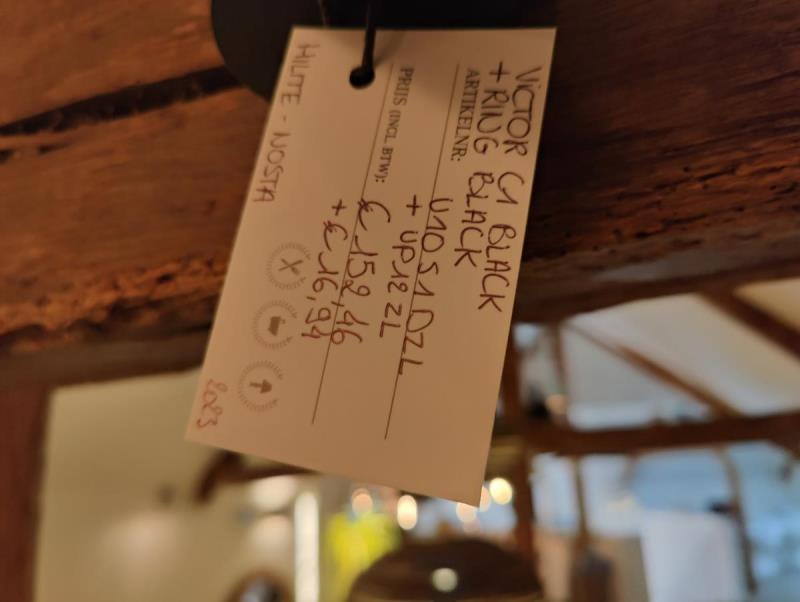 VICTOR C1 BLACK
+ RING BLACK
ARTIKELNR: U10S10ZL
+ UP12ZL
PRIJS (INCL. BTW): € 152,46
+ € 16,94
HILITE - NOSTA
2023